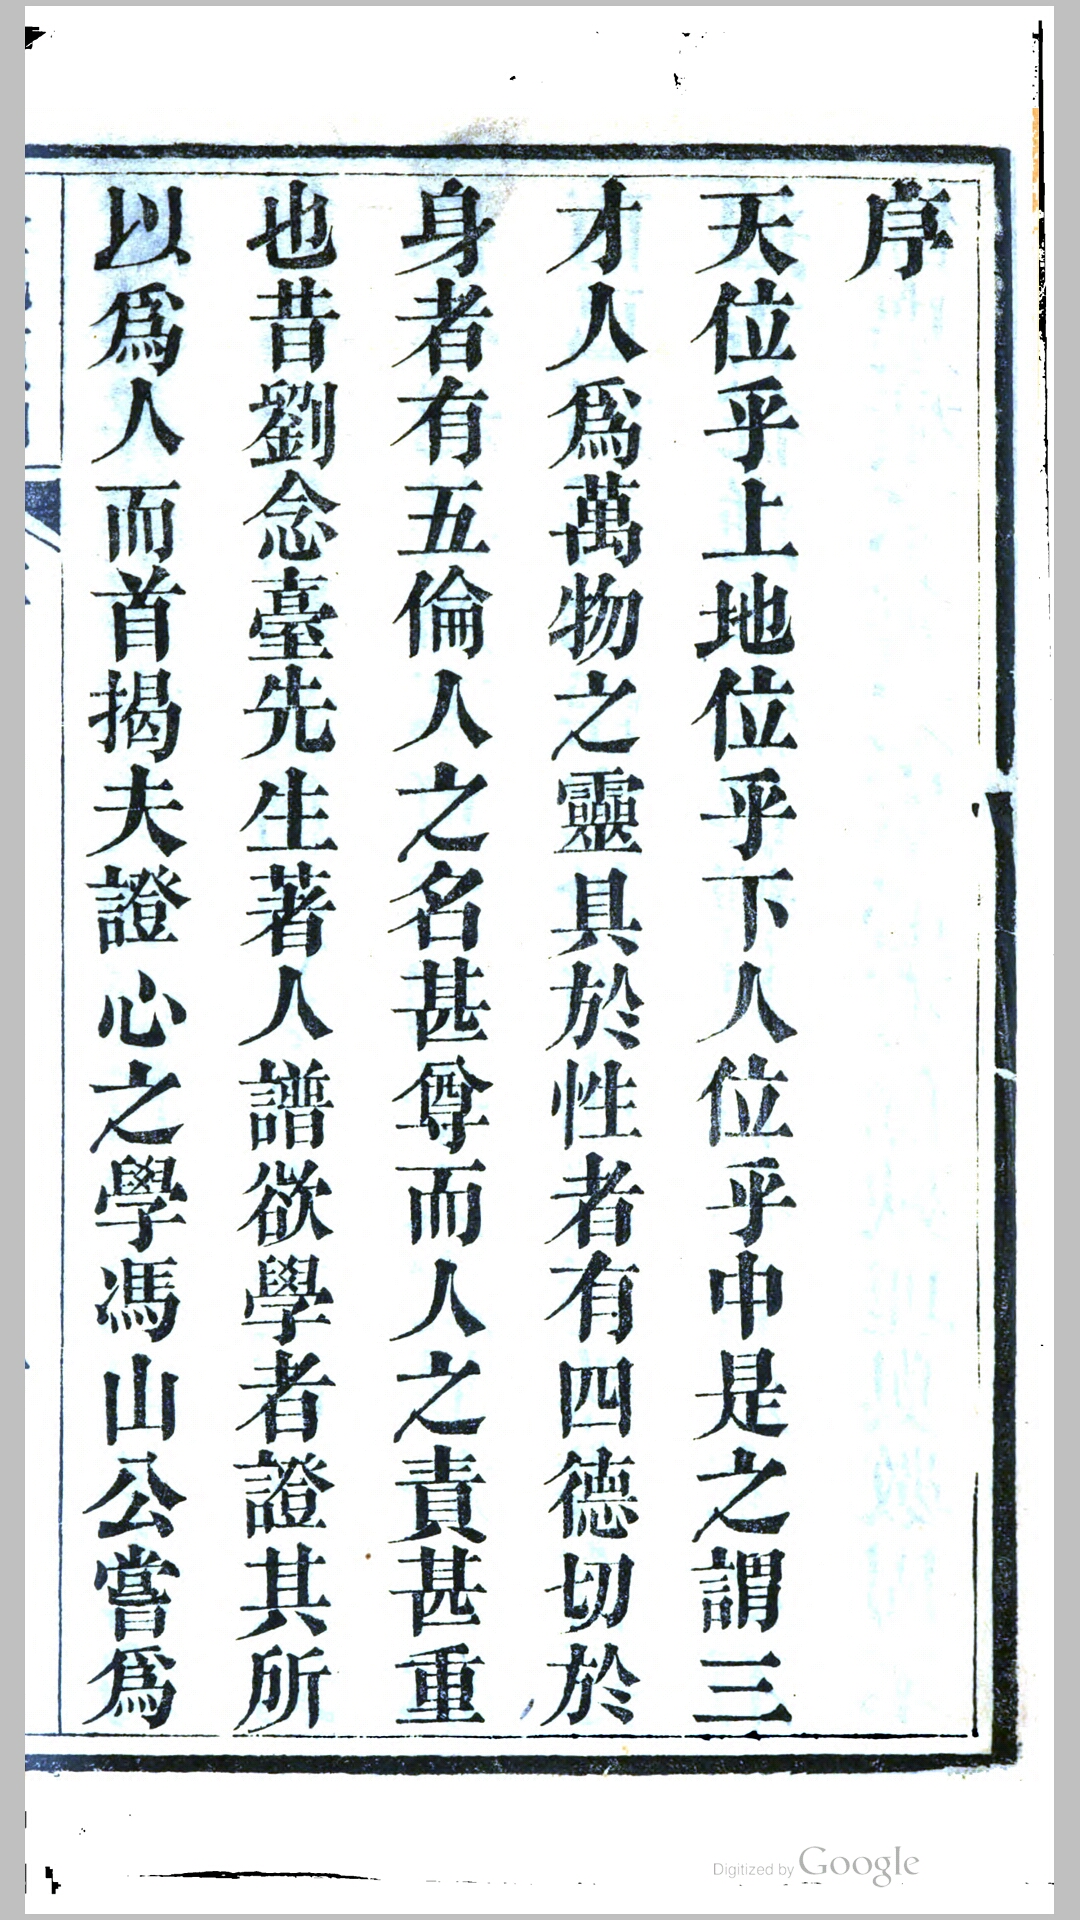 序
天位乎上地位乎下人位乎中是之謂三
才人爲萬物之靈具於性者有四德切於
身者有五倫人之名甚尊而人之責甚重
也昔劉念臺先生著人譜欲學者證其所
以爲人而首揭夫證心之學馮山公嘗爲
Digitized by Google